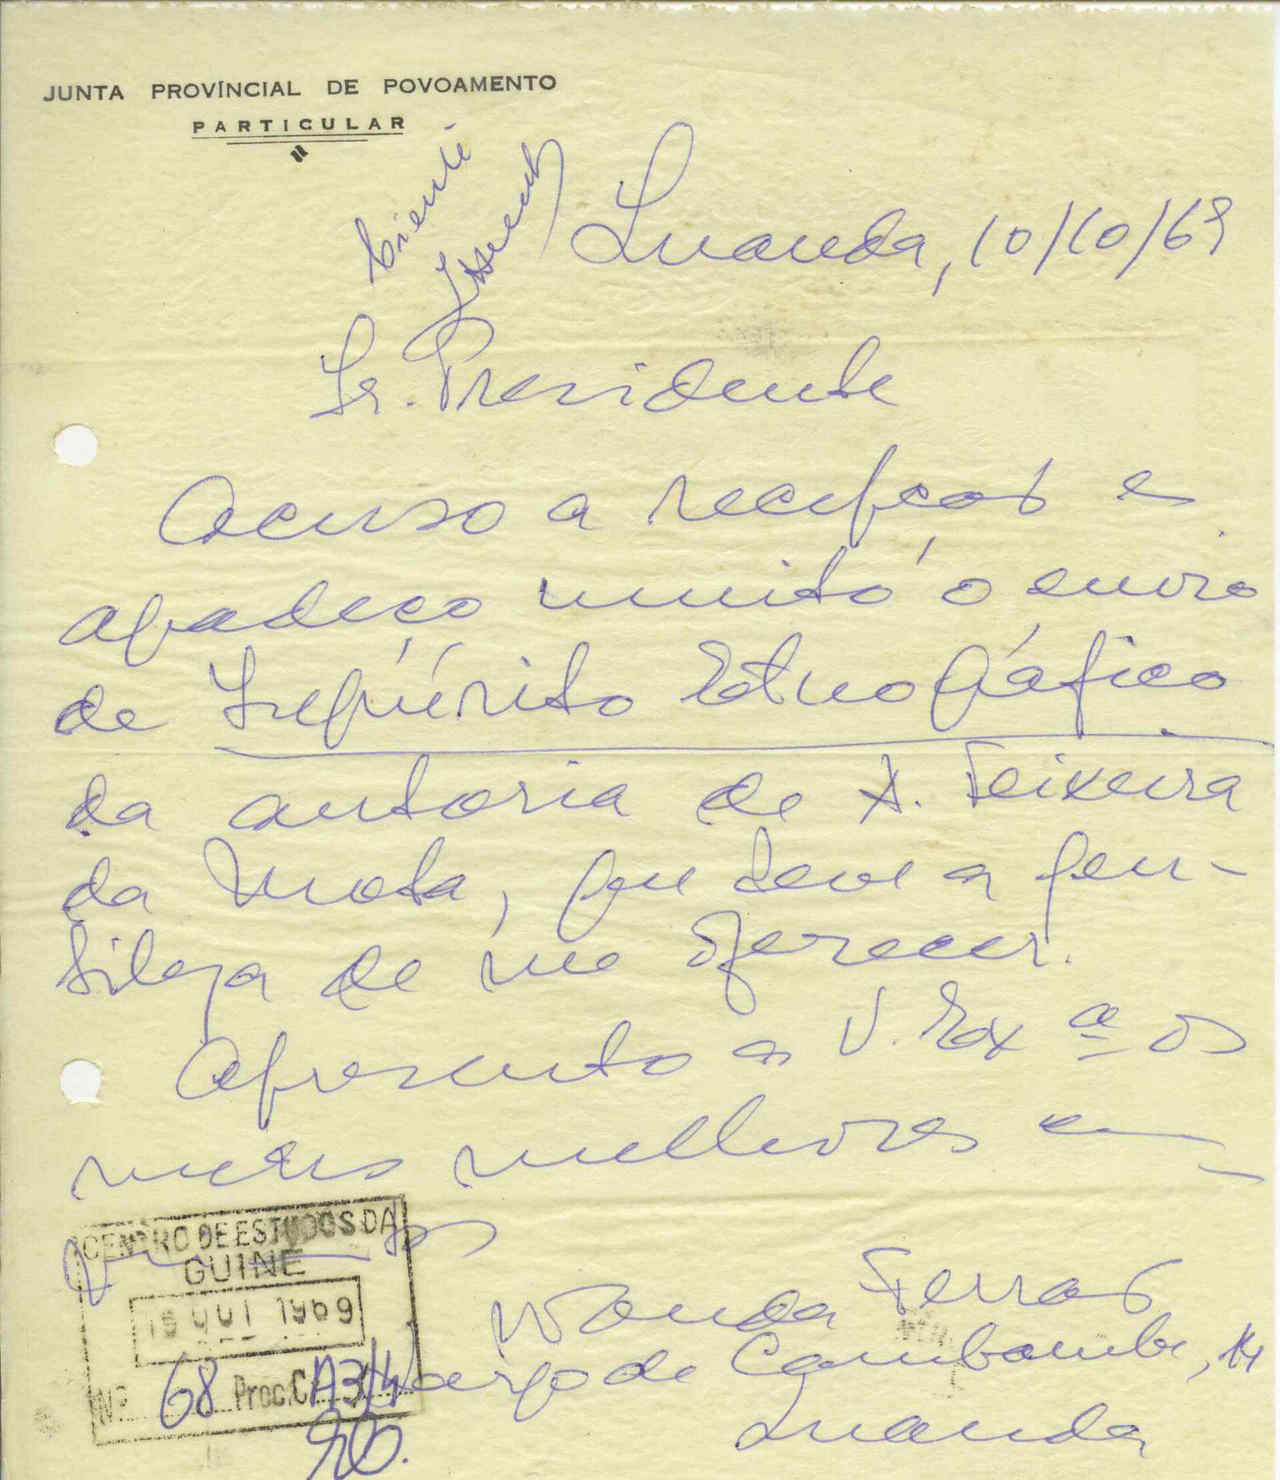 JUNTA PROVINCIAL DE POVOAMENTO
PARTICULAR
Ciente
Luanda, 10/10/69
Sr. Presidente
Acuso a recepção e
agradeço muito o envio
de Inquérito Etnográfico
da autoria de A. Teixeira
da Mota, que teve a gen-
tileza de me oferecer.
Apresento a V. Exª os
meus melhores cum-
primentos
Wanda Ferrão
Largo de Cambambe, 14
Luanda
CENTRO DE ESTUDOS DA
GUINÉ
OUT 1969
Nº 68 Proc. C